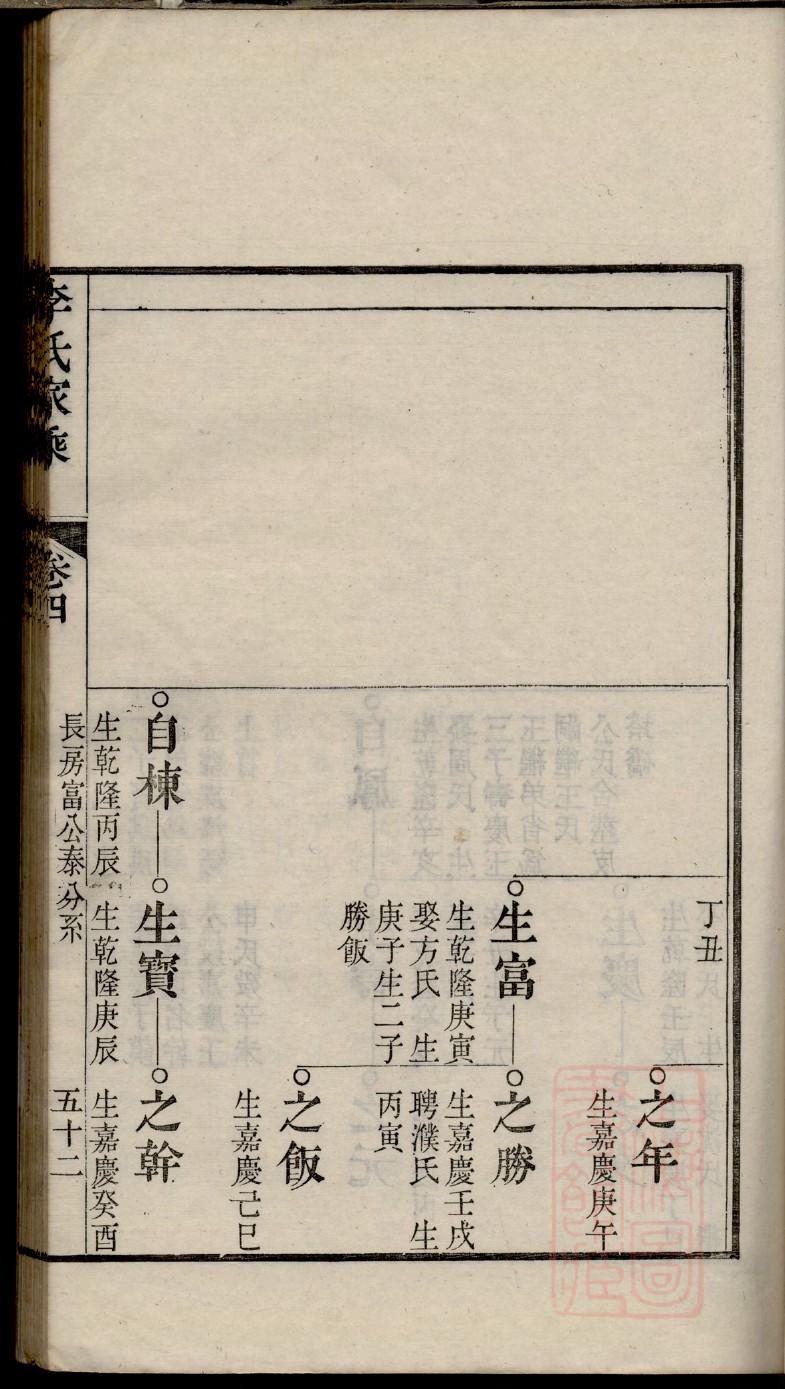 丁丑
之年
生嘉慶庚午
生富
生乾隆庚寅
娶方氏 生
庚子生二子
勝飯
之勝
生嘉慶壬戌
聘濮氏 生
丙寅
之飯
生嘉慶己巳
自棟
生乾隆丙辰
生寶
生乾隆庚辰
之幹
生嘉慶癸酉
李氏家乘
卷四
長房富公泰分系
五十二